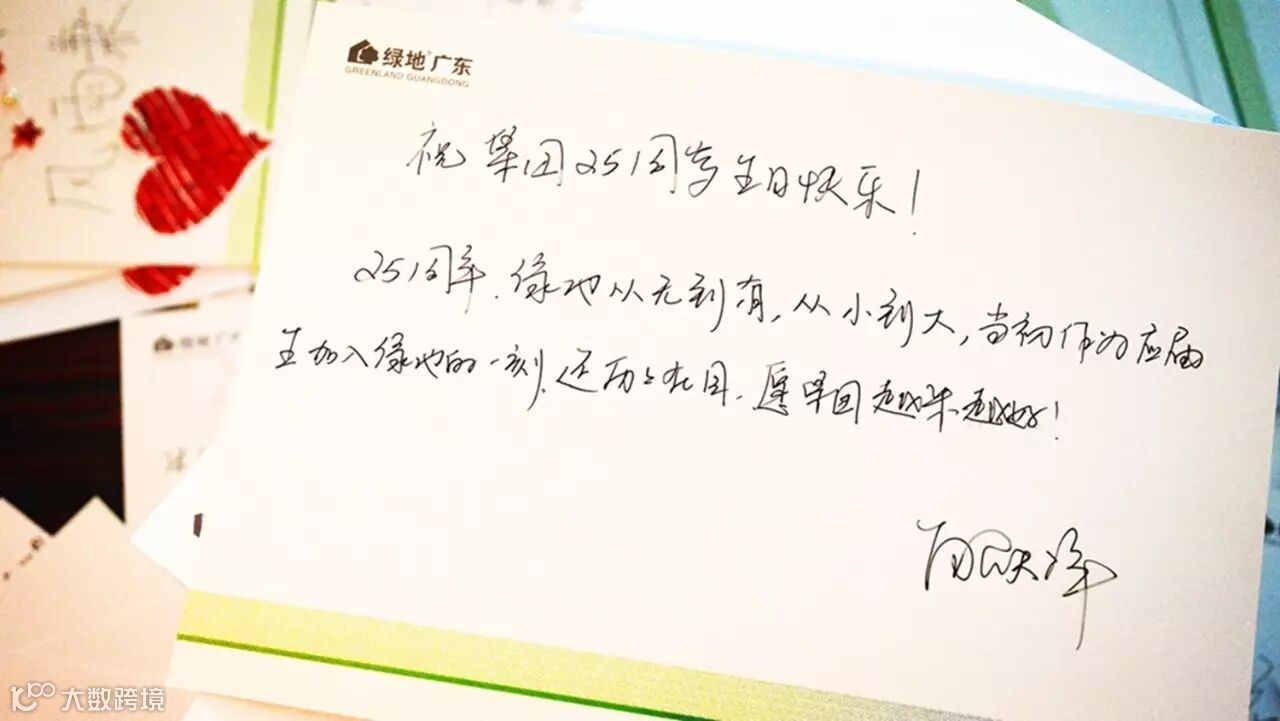 绿地®广东
GREENLAND GUANGDONG
祝集团25周岁生日快乐！
25周年，绿地从无到有，从小到大，当初作为应届
生加入绿地的一刻，还历历在目，愿集团越来越好！
绿地 广东
大数跨境